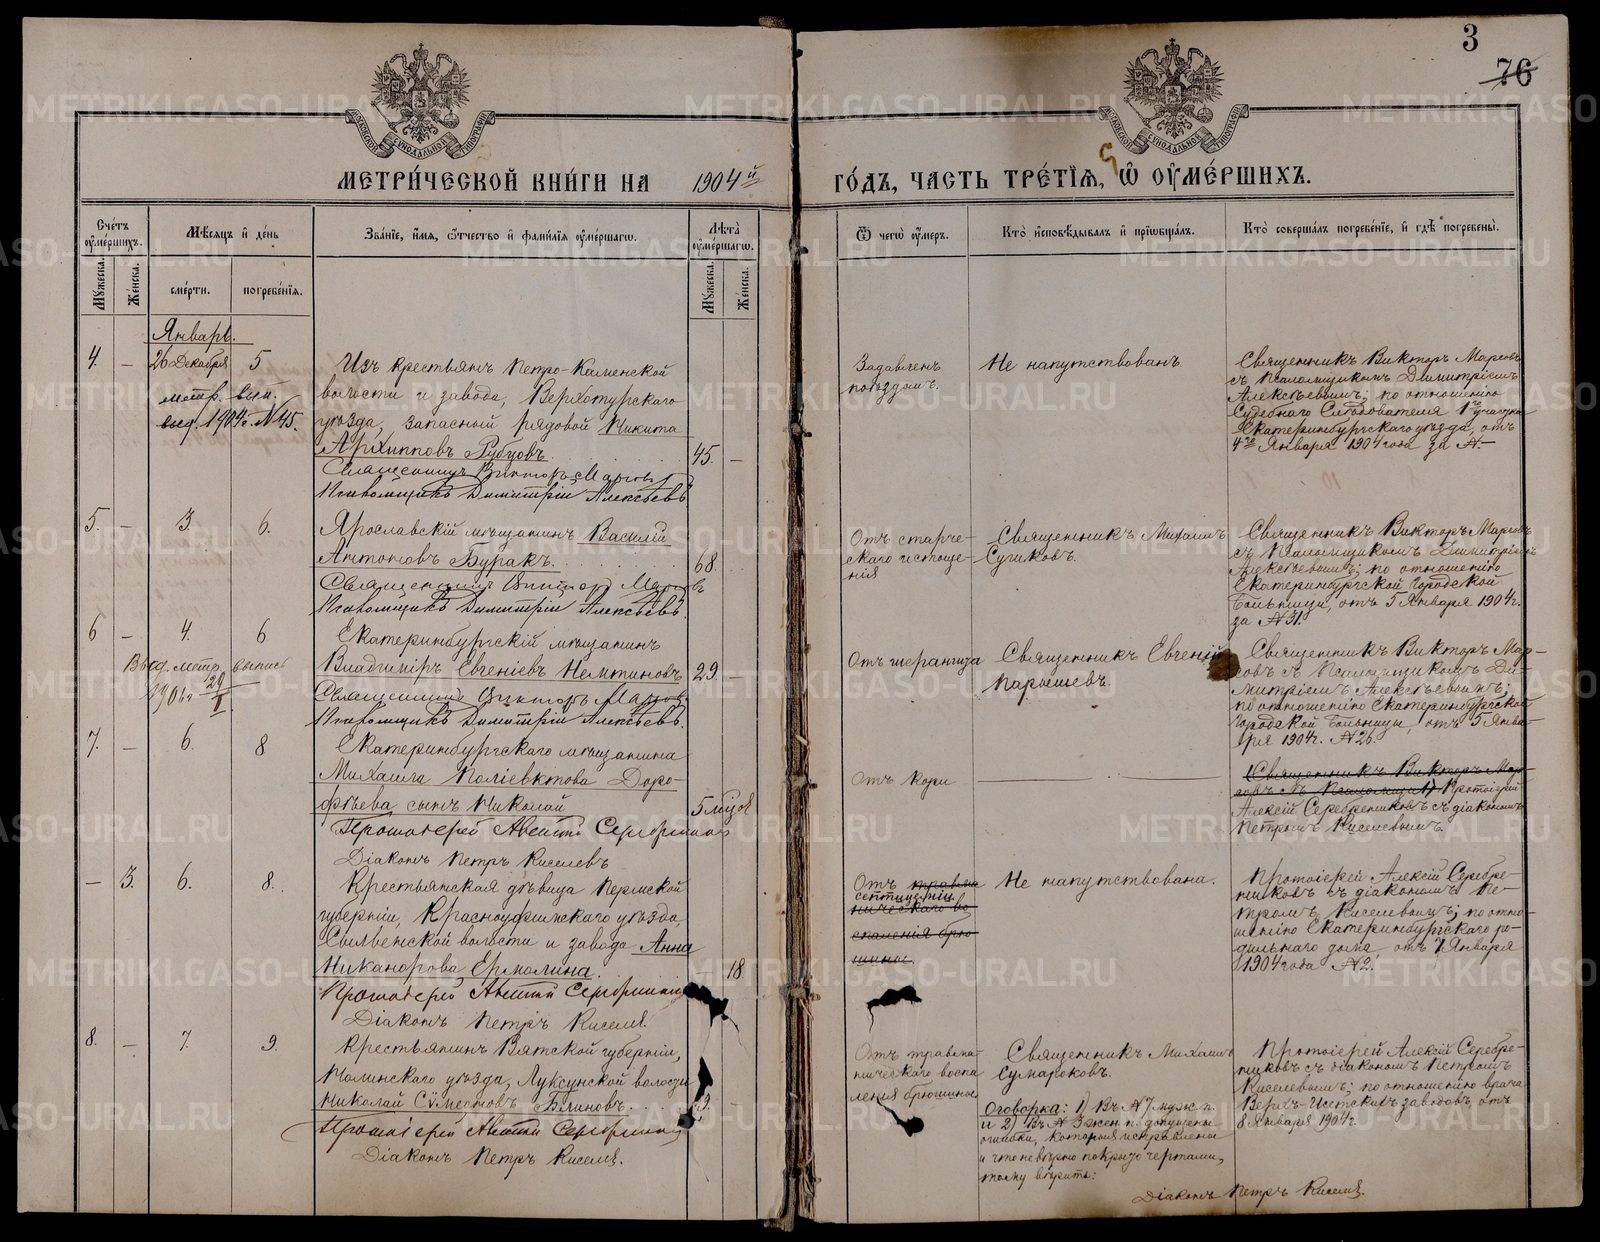 3
76
МЕТРИ́ЧЕСКОЙ КНИ́ГИ НА 1904й
ГО́ДЪ, ЧАСТЬ ТРЕ́ТІѦ, Ѡ ОУМЕ́РШИХЪ.
Сче́тъ оумершихъ.
Мѣсяцъ и де́нь
Зва́ніе, и́мя, о́тчество и фами́лія оумершагѡ.
Лѣта оумершагѡ.
Мужеска.
Же́нска.
сме́рти.
погребе́нія.
Мужеска.
Же́нска.
Ѿ чегѡ̀ оумеръ.
Кто̀ исповѣдывалъ и пріѡбща́лъ.
Кто̀ соверша́лъ погребе́ніе, и гдѣ погребены̀.
Январь.
4. – 26 Декабря 5
метр. вып.
выд. 1904г. №45.
Изъ крестьянъ Петро-Каменской
волости и завода, Верхотурскаго
уѣзда, запасный рядовой Никита
Архипповъ Рубцовъ. 45. –
Священникъ Викторъ Марсовъ
Псаломщикъ Димитрій Алексѣевъ
Задавленъ
поѣздомъ.
Не напутствованъ.
Священникъ Викторъ Марсовъ
съ псаломщикомъ Димитріемъ
Алексѣевымъ; по отношенію
Судебнаго Слѣдователя 1го участка
Екатеринбургскаго уѣзда, отъ
4го Января 1904 года за №–
5. – 3. 6.
Ярославскій мѣщанинъ Василій
Антоновъ Буракъ. 68.
Священникъ Викторъ Марсовъ
Псаломщикъ Димитрій Алексѣевъ.
Отъ старче-
скаго истоще-
нія
Священникъ Михаилъ
Священникъ Викторъ Марсовъ
съ псаломщикомъ Димитріемъ
Алексѣевымъ; по отношенію
Екатеринбургской Городской
Больницы, отъ 5 Января 1904г.
за №31.
6 – 4. 6
Выд. метр. выпись
1904г 29/I
Екатеринбургскій мѣщанинъ
Владиміръ Евгеніевъ Немтиновъ 29. –
Священникъ Викторъ Марсовъ
Псаломщикъ Димитрій Алексѣевъ.
Священникъ Евгеній
Священникъ Викторъ Мар-
совъ съ псаломщикомъ Ди-
митріемъ Алексѣевымъ;
по отношенію Екатеринбургской
Городской Больницы, отъ 5 Янва-
ря 1904г. №26.
7. – 6. 8
Екатеринбургскаго мѣщанина
Михаила Поліевктова Доро-
фѣева сынъ Николай 5 мѣсяц
Протоіерей Алексій Серебренниковъ
Діаконъ Петръ Киселевъ
Отъ кори
Священникъ Викторъ Мар-
совъ съ псаломщик Протоіерей
Алексій Серебренниковъ съ діакономъ
Петромъ Киселевымъ.
– 3. 6. 8.
Крестьянская дѣвица Пермской
губерніи, Красноуфимскаго уѣзда,
Сылвенской волости и завода Анна
Никанорова Ермолина. 18
Протоіерей Алексій Серебренниковъ
Діаконъ Петръ Киселевъ.
Отъ травма
ническаго во
спаленія брю
шины.
Не напутствована.
Протоіерей Алексій Серебре-
никовъ съ діакономъ Пе-
тромъ Киселевымъ; по отно-
шенію Екатеринбургскаго ро-
дильнаго дома отъ 7 Января
1904 года №2.
8. – 7. 9.
Крестьянинъ Вятской губерніи,
Нолинскаго уѣзда, волости
Николай Блиновъ.
Протоіерей Алексій Серебренниковъ
Діаконъ Петръ Киселевъ.
Отъ травма-
тическаго воспа-
ленія брюшины
Священникъ Михаилъ
Сумароковъ.
Протоіерей Алексій Серебре-
никовъ съ діакономъ Петромъ
Киселевымъ; по отношенію врача
Верхъ-Исетскихъ заводовъ, отъ
8 Января 1904г.
Оговорка: 1) Въ №7 муж. п.
и 2) въ № 3 жен. п. допущены
ошибки, которыя исправлены
и что невѣрно покрыто чертами,
тому вѣрить:
Діаконъ Петръ Киселевъ.
METRIKI.GASO-URAL.RU